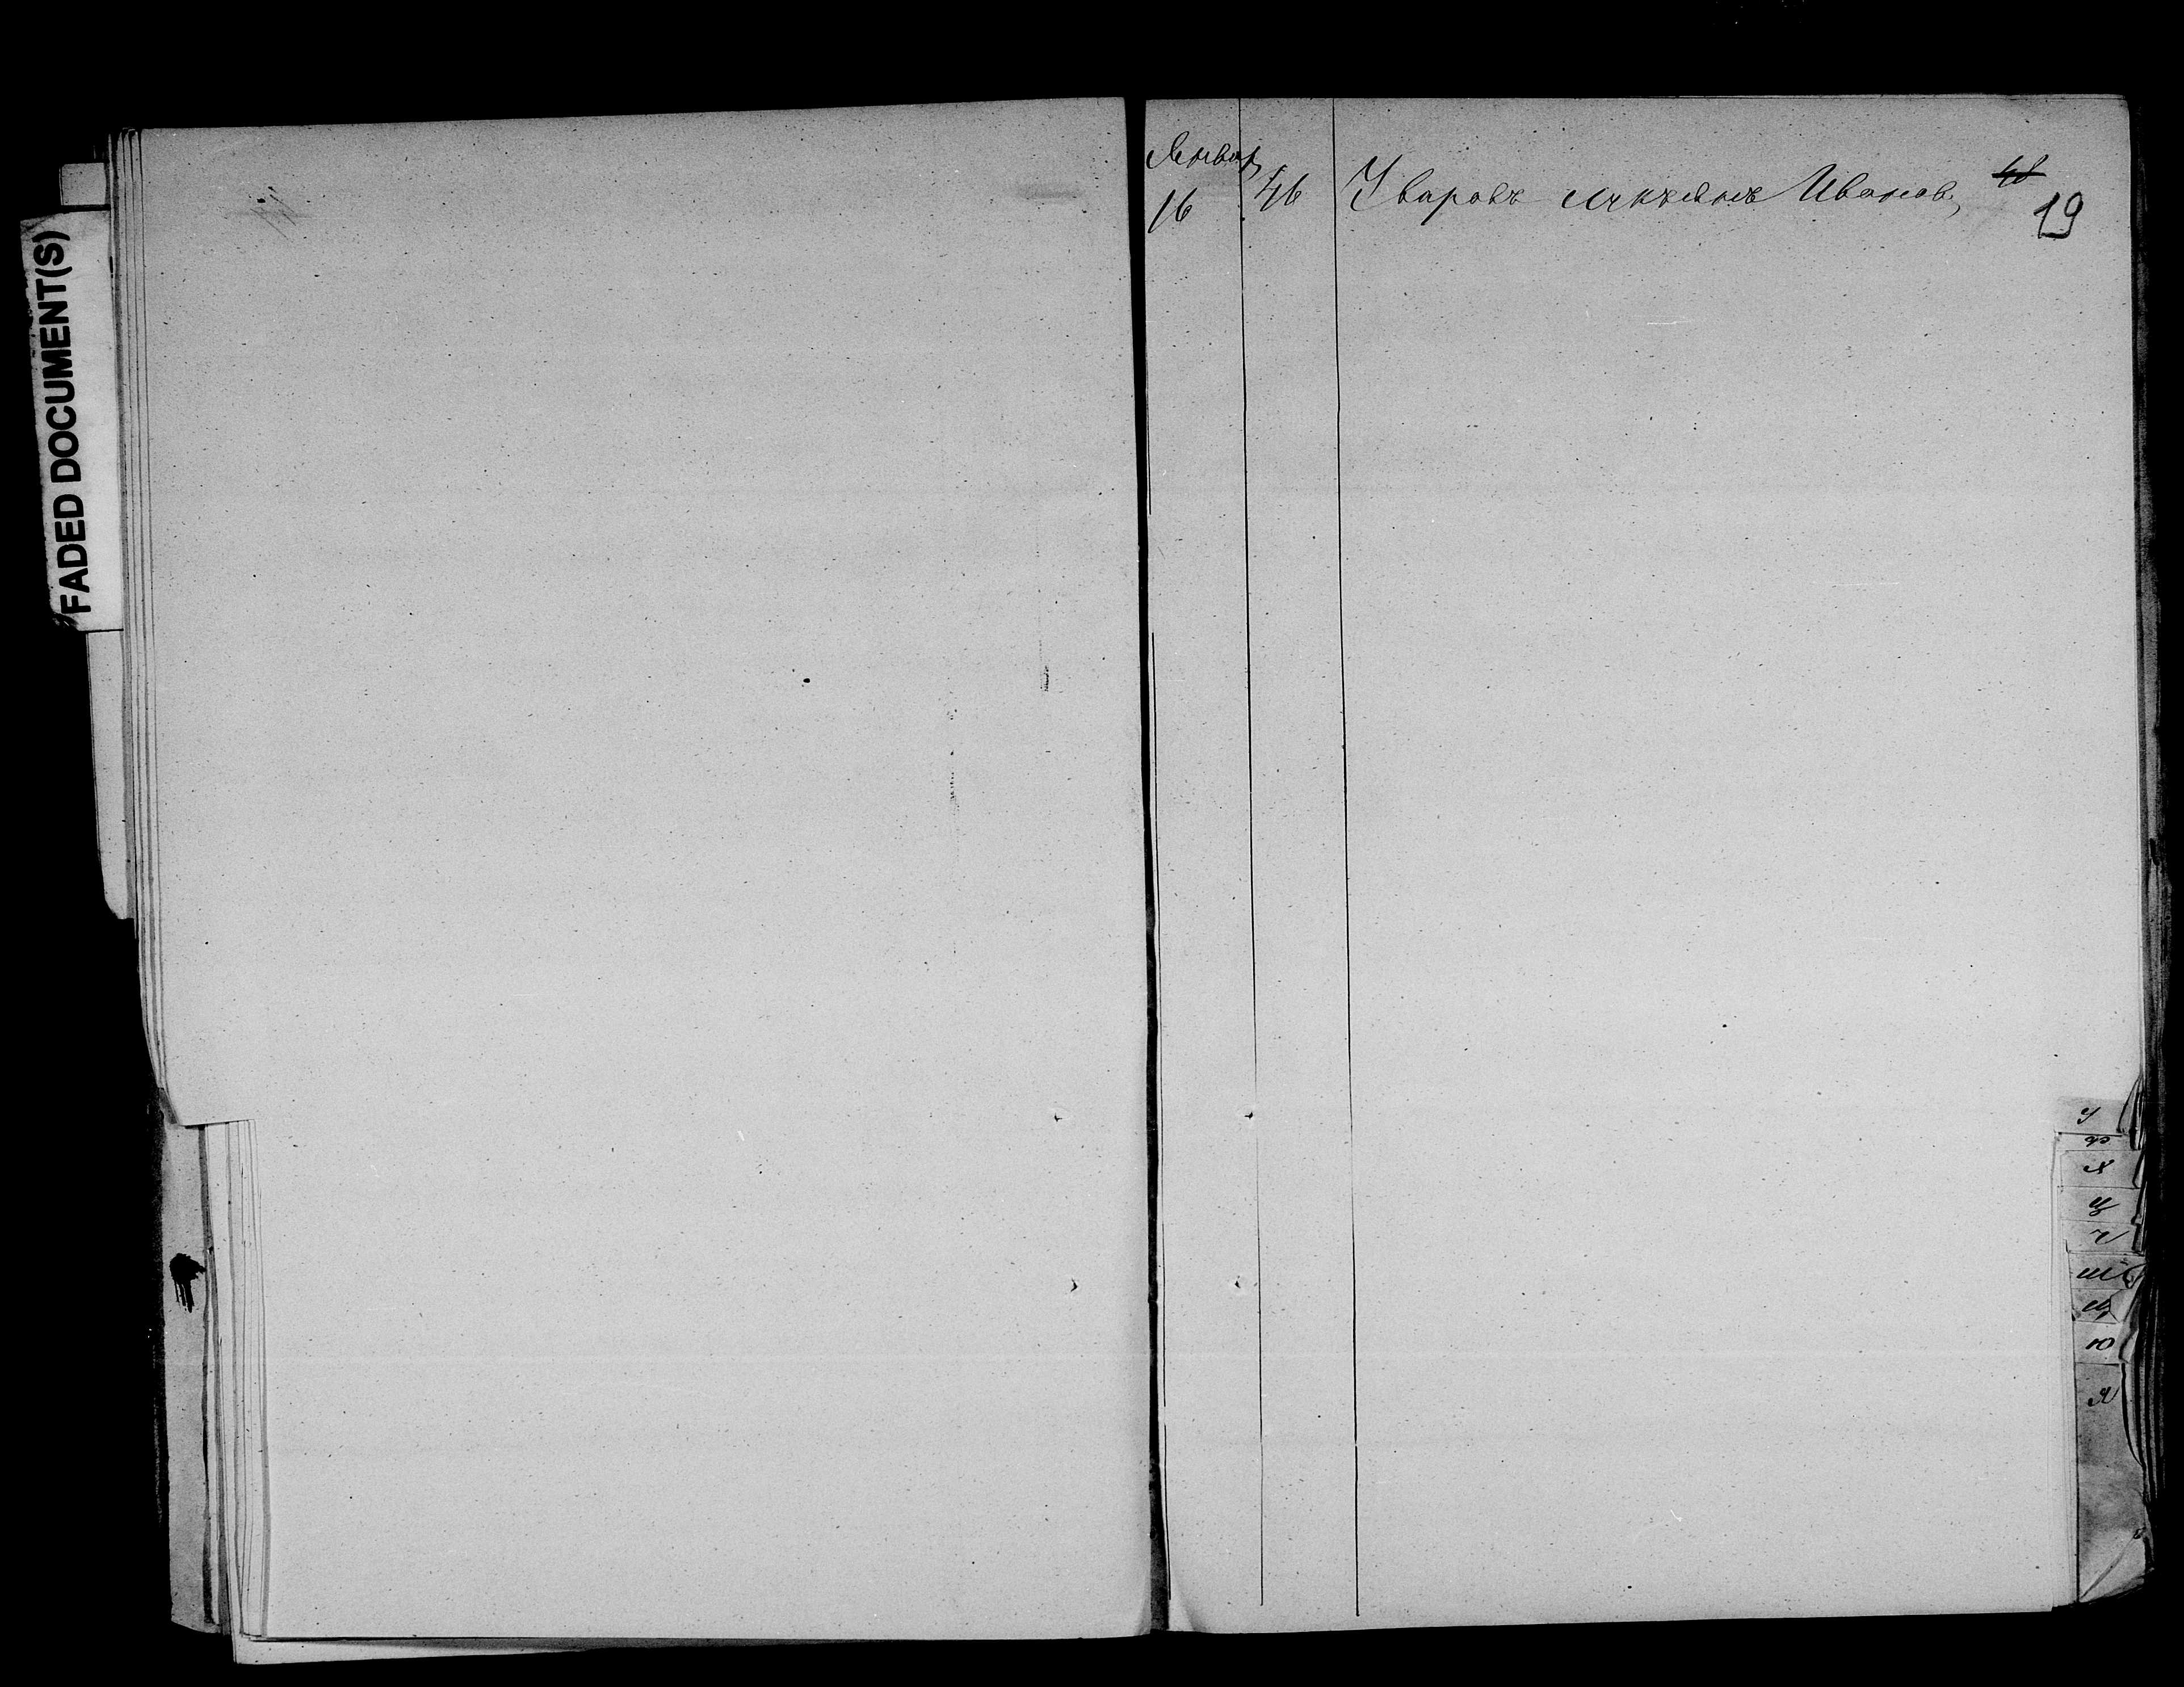 FADED DOCUMENT(S)
Январ
16 46 Уваровъ Лукьянъ Иванов,
19
У
Ф
Х
Ц
Ч
Ш
Щ
Ю
Я